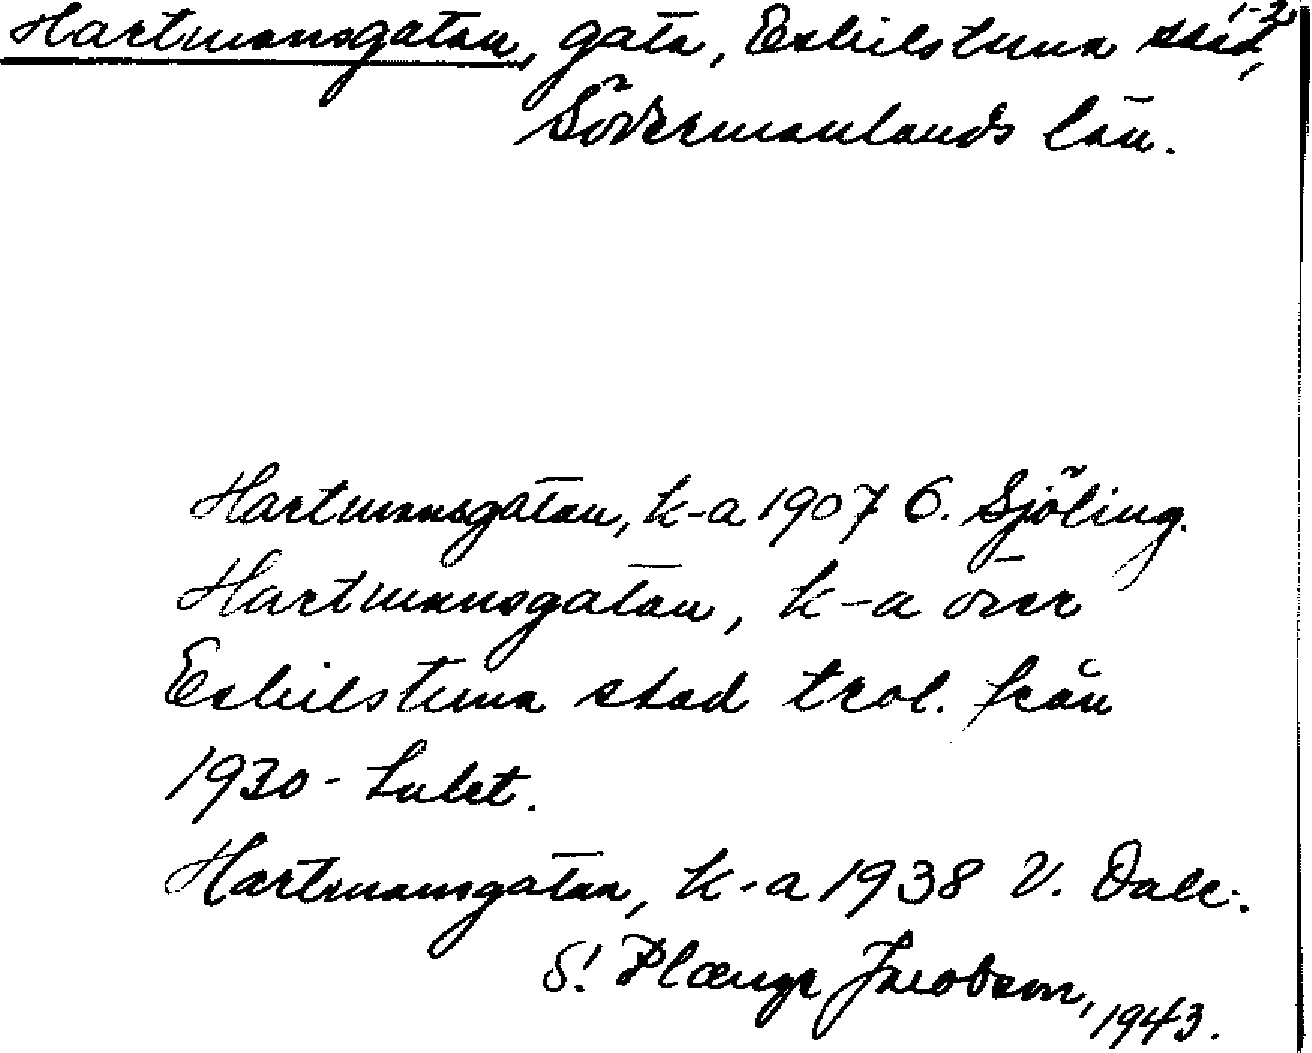 Hartmansgatan, gata, Eskilstuna stad, 1-2
Södermanlands län.
Hartmansgatan, k-a 1907 G. Sjöling.
Hartmansgatan, k-a över
Eskilstuna stad trol. från
1930-talet.
Hartmansgatan, k-a 1938 V. Dale.
S. Plænge Jacobson, 1943.